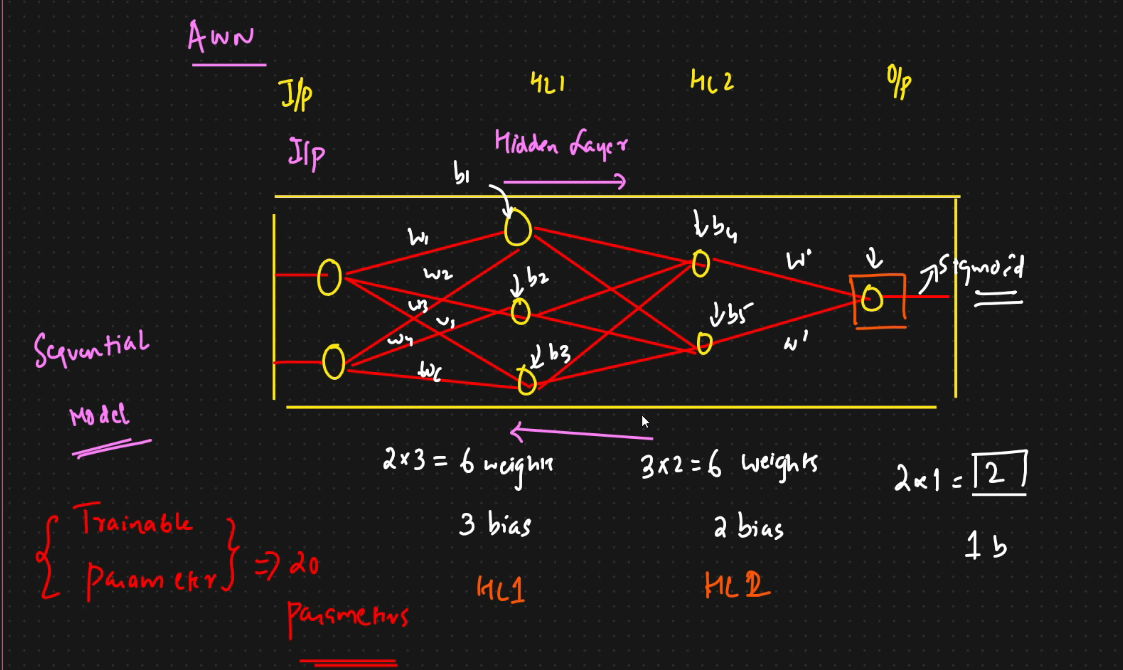 ANN
I/p HL1 HL2 O/p
I/p Hidden Layer
b1
w1
w2
w3
w4
w6
b2
b3
b4
b5
w'
w'
Sigmoid
Sequential
Model
2×3 = 6 weights
3×2 = 6 weights
2×1 = 2
3 bias
2 bias
1 b
HL1
Trainable
Parameter
⇒ 20
parameters